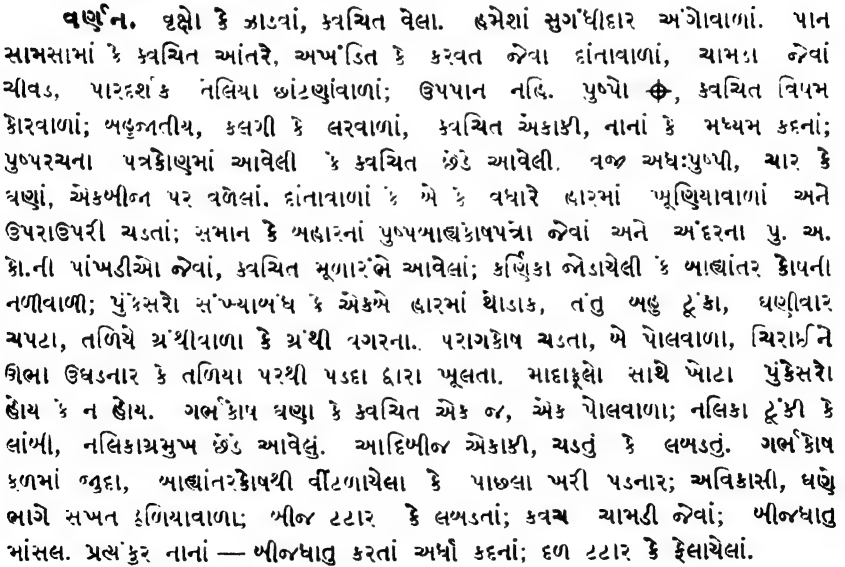 વર્ણન. વૃક્ષો કે ઝાડવાં, ક્વચિત વેલા. હમેશાં સુગંધીદાર અંગોવાળાં. પાન
સામસામાં કે ક્વચિત આંતરે, અખંડિત કે કરવત જેવા દાંતાવાળાં, ચામડા જેવાં
ચીવડ, પારદર્શક તેલિયા છાંટણાંવાળાં; ઉપપાન નહિ. પુષ્પો ⌖, ક્વચિત વિષમ
કોરવાળાં; બહુજાતીય, કલગી કે લરવાળાં, ક્વચિત એકાકી, નાનાં કે મધ્યમ કદનાં;
પુષ્પરચના પત્રકોણમાં આવેલી કે ક્વચિત છેડે આવેલી. વજ્ર અધઃપુષ્પી, ચાર કે
ઘણાં, એકબીજા પર વળેલાં. દાંતાવાળાં કે બે કે વધારે હારમાં ખૂણિયાવાળાં અને
ઉપરાઉપરી ચડતાં; સમાન કે બહારનાં પુષ્પબાહ્યકોષપત્રો જેવાં અને અંદરના પુ. અ.
કો.ની પાંખડીઓ જેવાં, ક્વચિત મૂળારંભે આવેલાં; કર્ણિકા જોડાયેલી કે બાહ્યાંતર કોષની
નળીવાળી; પુંકેસરો સંખ્યાબંધ કે એકબે હારમાં થોડાક, તંતુ બહુ ટૂંકા, ઘણીવાર
ચપટા, તળિયે ગ્રંથીવાળા કે ગ્રંથી વગરના. પરાગકોષ ચડતા, બે પોલવાળા, ચિરાઈને
ઊભા ઉઘડનાર કે તળિયા પરથી પડદા દ્વારા ખૂલતા. માદાફૂલો સાથે ખોટા પુંકેસરો
હોય કે ન હોય. ગર્ભકોષ ઘણા કે ક્વચિત એક જ, એક પોલવાળા; નલિકા ટૂંકી કે
લાંબી, નલિકાગ્રમુખ છેડે આવેલું. આદિબીજ એકાકી, ચડતું કે લબડતું. ગર્ભકોષ
ફળમાં જુદા, બાહ્યાંતરકોષથી વીંટળાયેલા કે પાછલા ખરી પડનાર; અવિકાસી, ઘણે
ભાગે સખત ઠળિયાવાળા; બીજ ટટાર કે લબડતાં; કવચ ચામડી જેવાં; બીજધાતુ
માંસલ. પ્રત્યંકુર નાનાં — બીજધાતુ કરતાં અર્ધા કદનાં; દળ ટટાર કે ફેલાયેલાં.